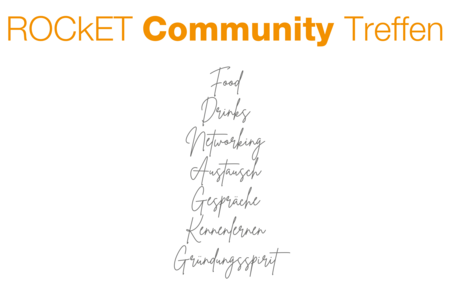 ROCkET Community Treffen
Food
Drinks
Networking
Austausch
Gespräche
Kennenlernen
Gründungsspirit